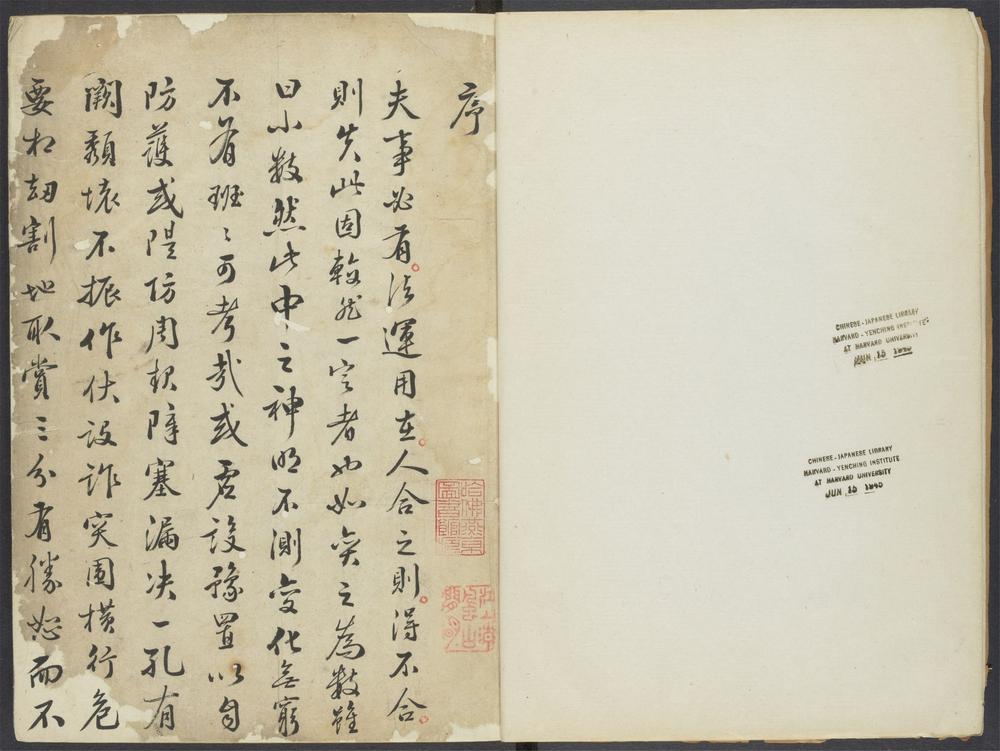 序
夫事必有法運用在人合之則得不合
則失此固較然一定者也如奕之為數雖
曰小數然此中之神明不測變化無窮
不有班〻可考哉或虛設豫置以自
防護或隄防周賴障塞漏决一孔有
闕頹壞不振作伏設詐突圍橫行危
要相劫割地取賞三分有勝恕而不
哈佛燕京圖書館印
CHINESE-JAPANESE LIBRARY
HARVARD-YENCHING INSTITUTE
AT HARVARD UNIVERSITY
JUN 15 1940
CHINESE-JAPANESE LIBRARY
HARVARD-YENCHING INSTITUTE
AT HARVARD UNIVERSITY
JUN 15 1940